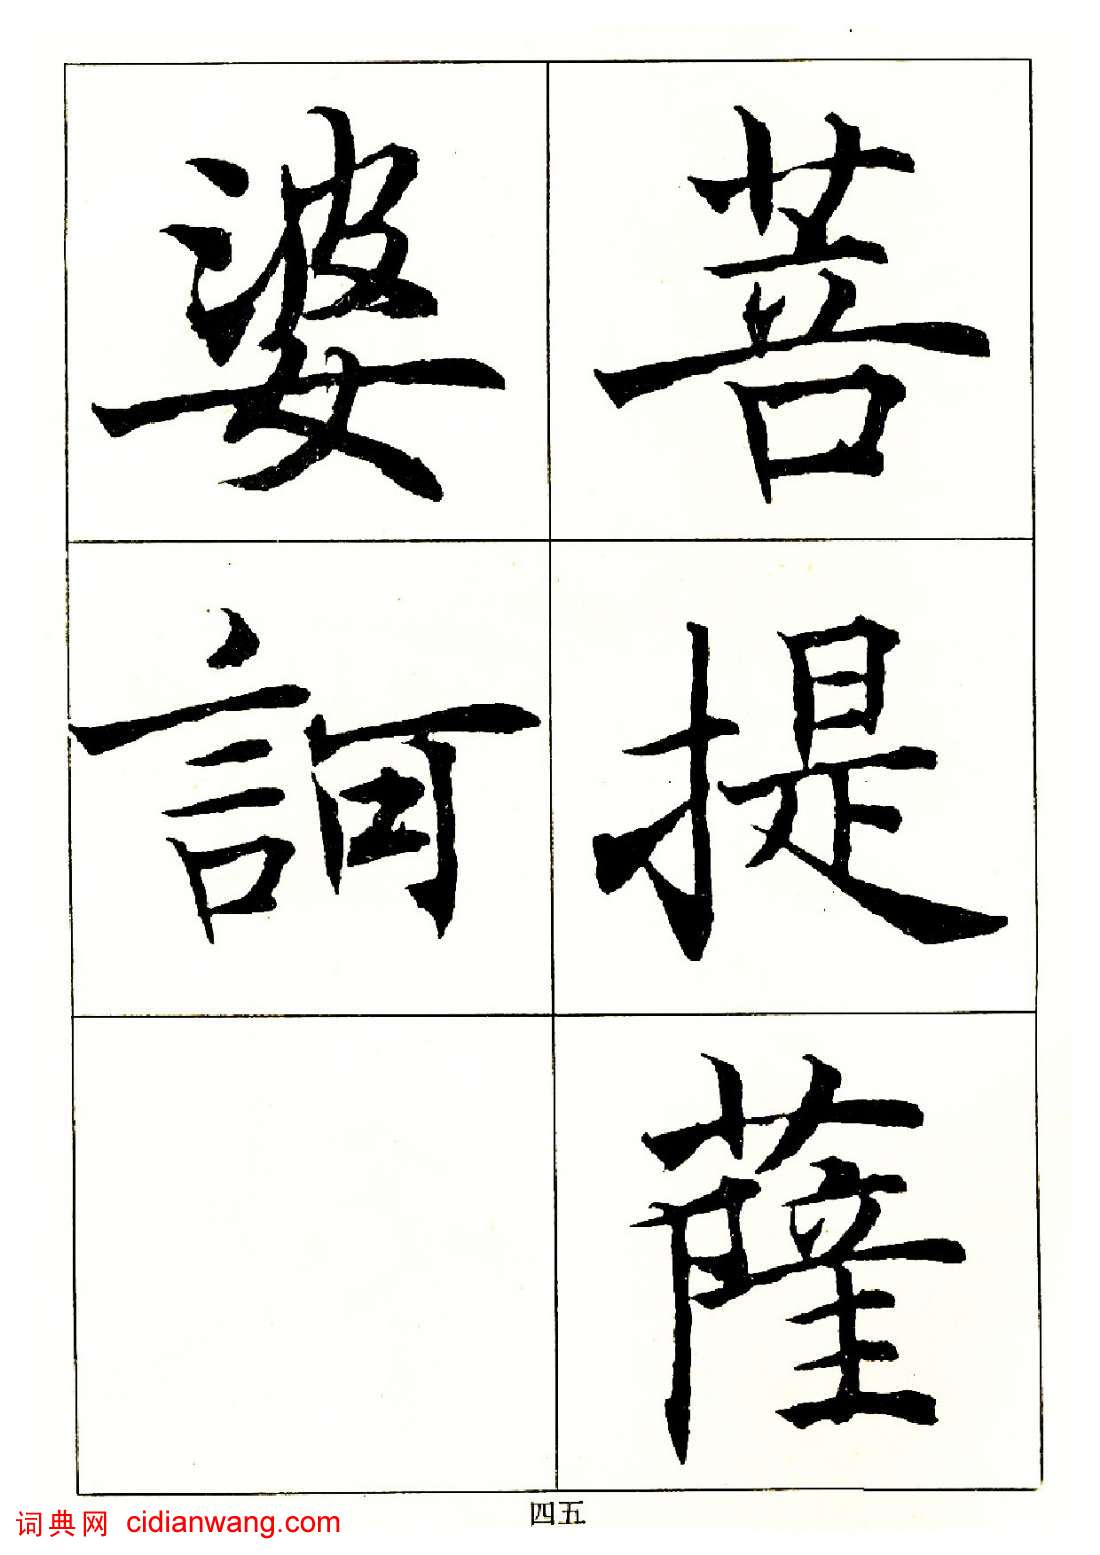 菩提薩
婆訶
四五
词典网 cidianwang.com